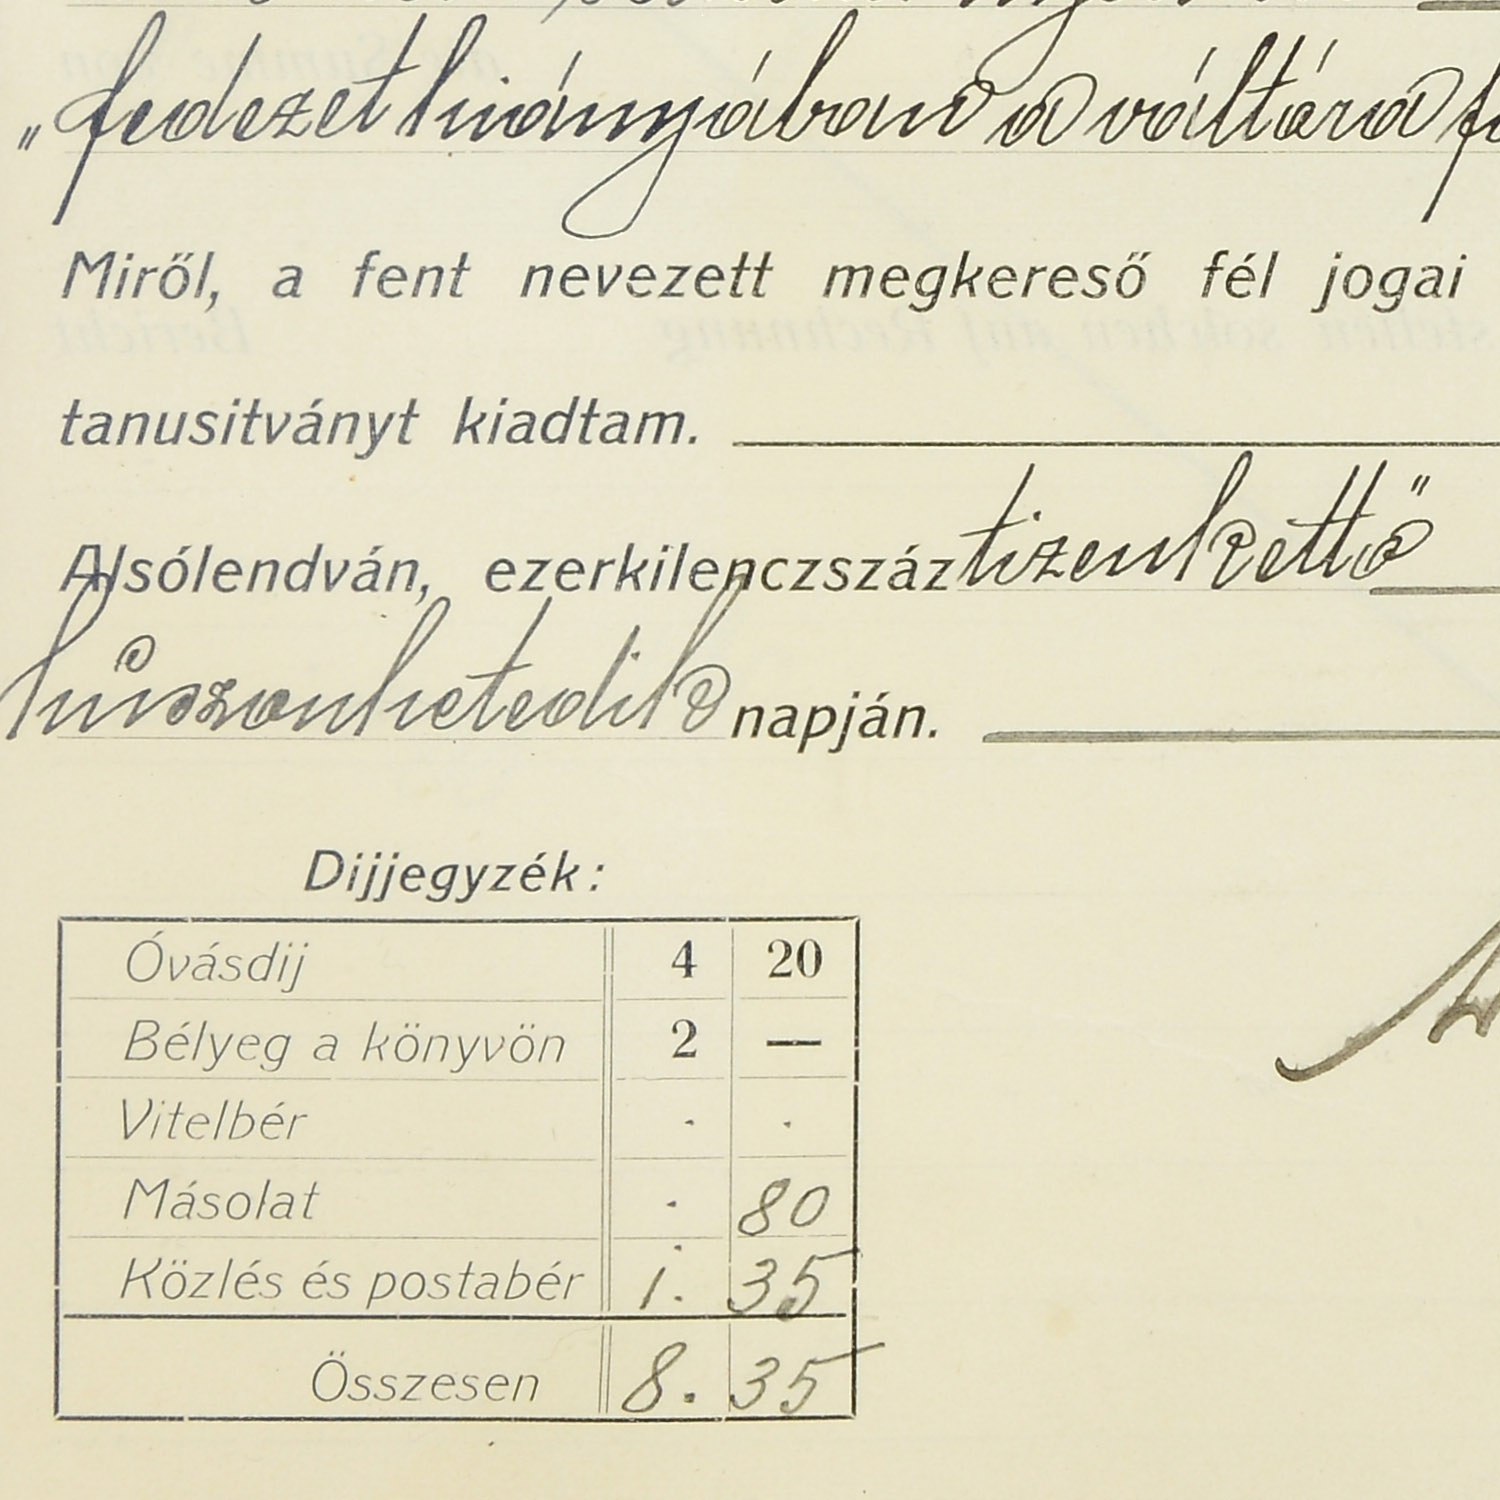 „fedezet hiányában a váltóra
Miről, a fent nevezett megkereső fél jogai
tanusitványt kiadtam.
Alsólendván, ezerkilenczszáz tizenkettő"
húszonhetedik napján.
Dijjegyzék:
Óvásdij 4 20
Bélyeg a könyvön 2 —
Vitelbér . .
Másolat . 80
Közlés és postabér 1. 35
Összesen 8. 35